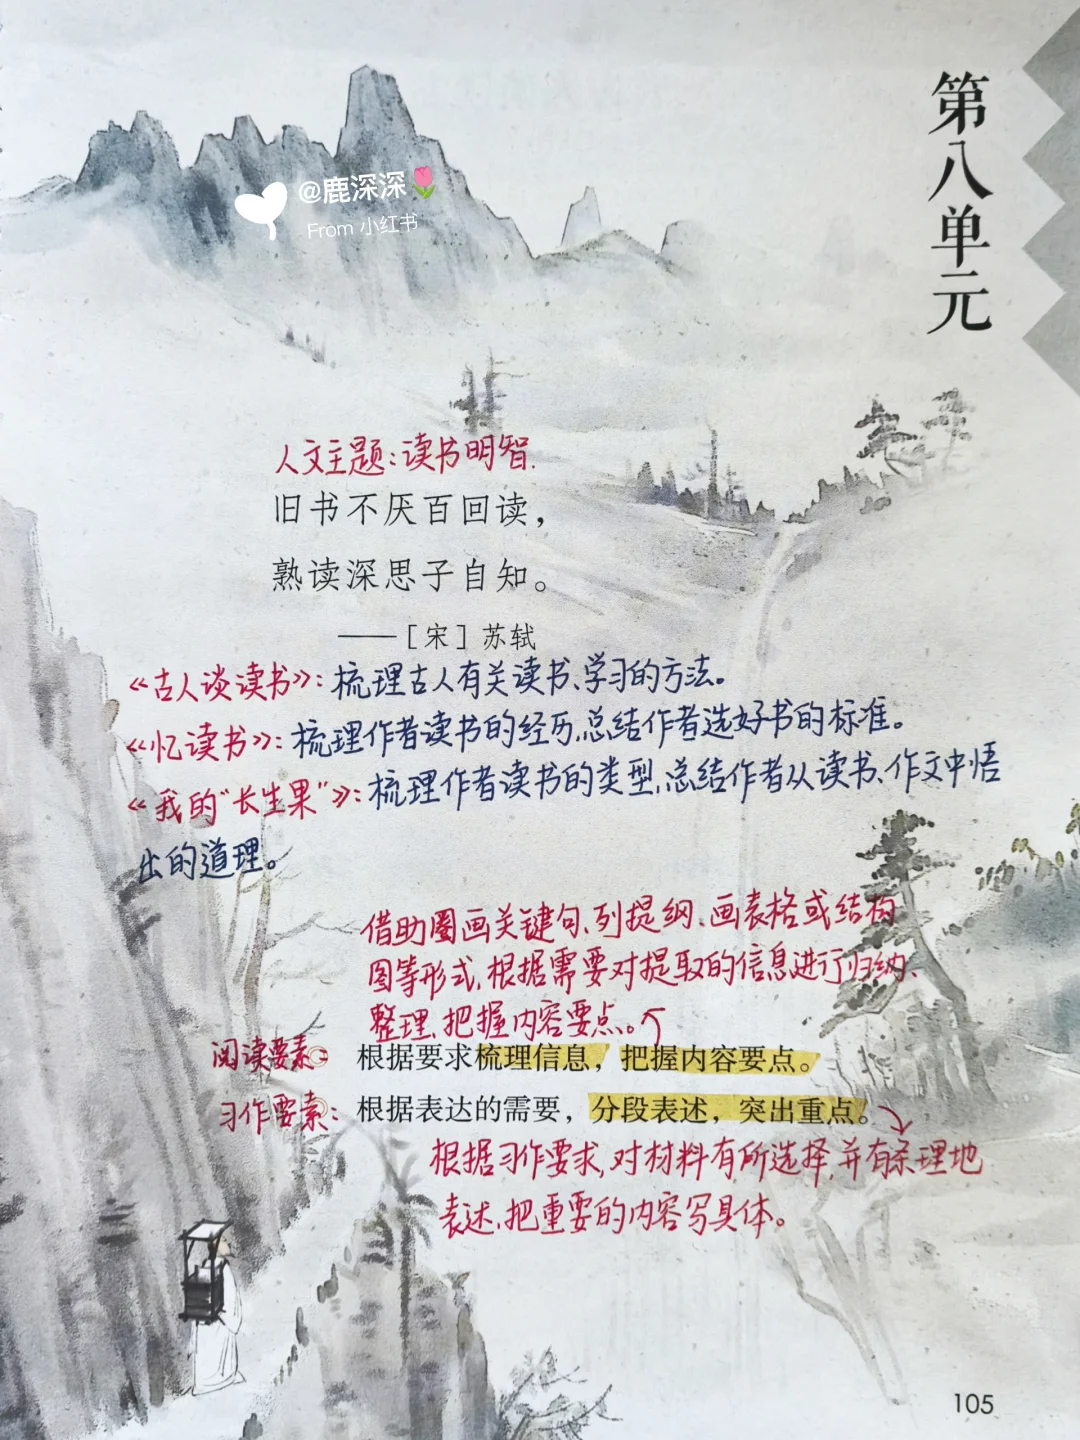 第八单元
@鹿深深🌷
From 小红书
人文主题:读书明智.
旧书不厌百回读，
熟读深思子自知。
——［宋］苏轼
《古人谈读书》:梳理古人有关读书、学习的方法。
《忆读书》:梳理作者读书的经历,总结作者选好书的标准。
《我的“长生果”》:梳理作者读书的类型,总结作者从读书、作文中悟
出的道理。
借助圈画关键句、列提纲、画表格或结构
图等形式,根据需要对提取的信息进行归纳、
整理,把握内容要点。
阅读要素: 根据要求梳理信息，把握内容要点。
习作要素: 根据表达的需要，分段表述，突出重点。
根据习作要求,对材料有所选择,并有条理地
表述,把重要的内容写具体。
105